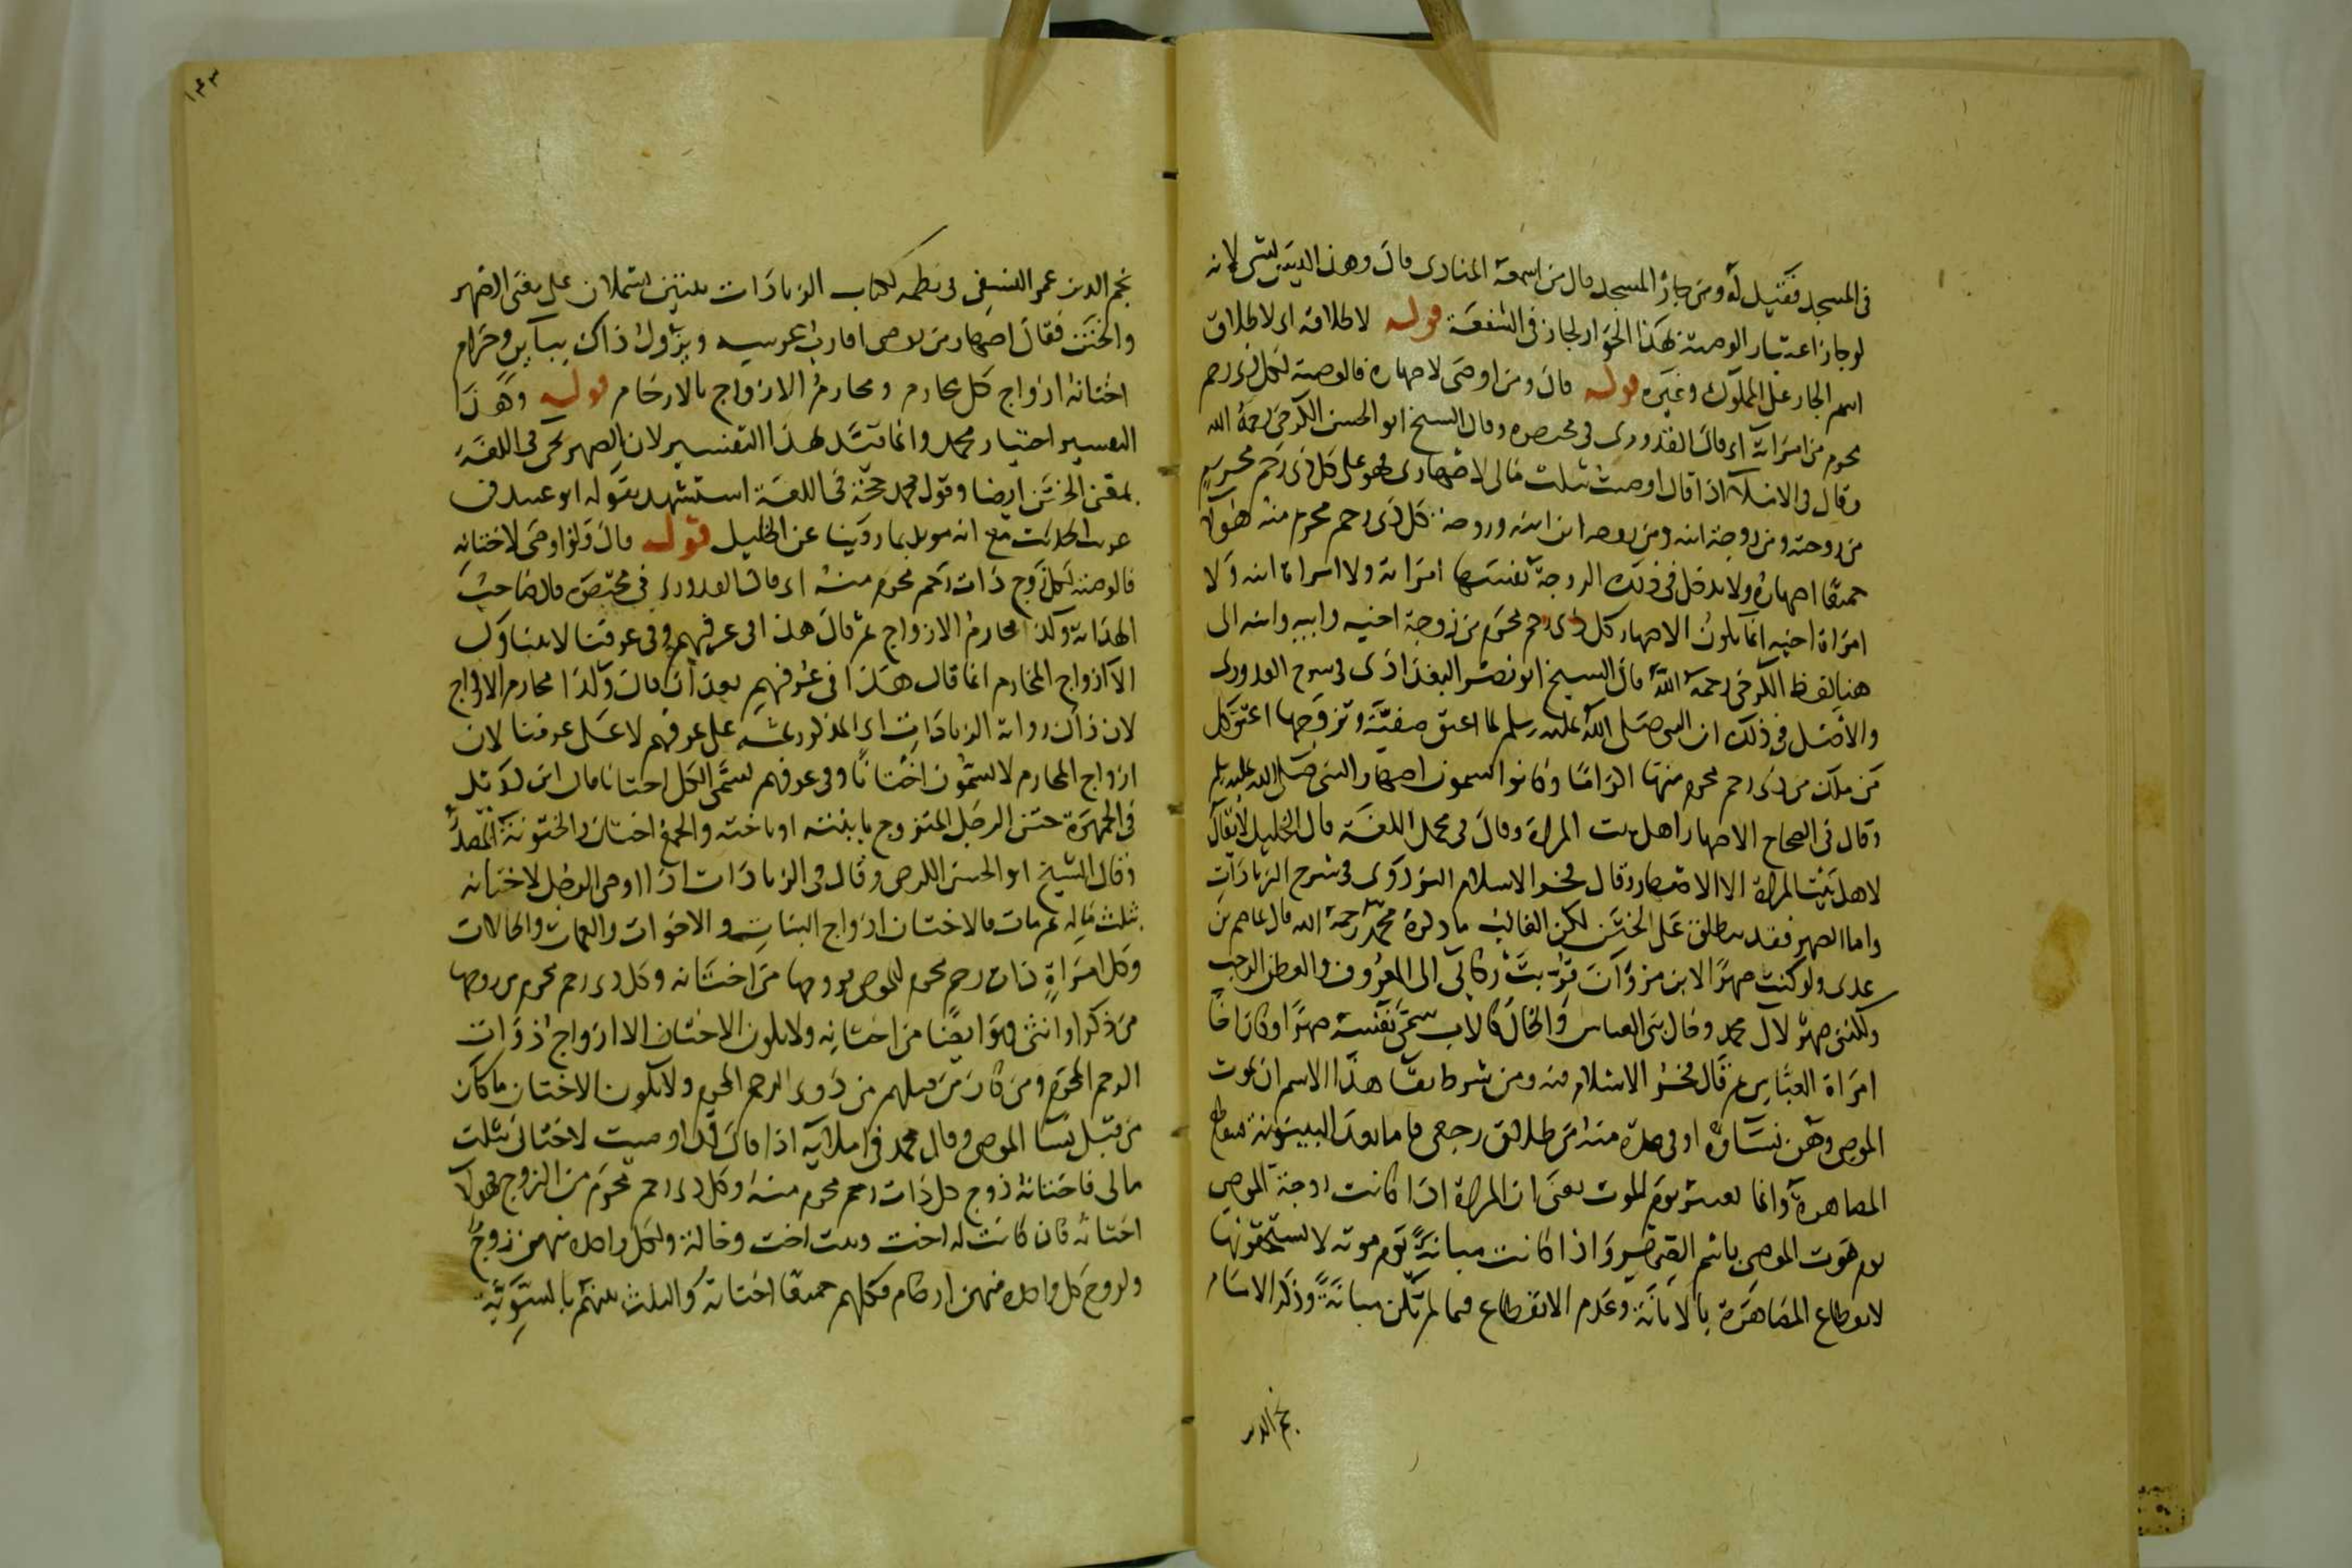 في المسجد فقيل له ومن جار المسجد قال من اسمعه المنادى قال وهذا ليس بشي لانه
لو جاز اعتبار الوصية بهذا الجوار لجاز في الشفعة قوله لاطلاقه اى لاطلاق
اسم الجار على المملوك وغيره قوله قال ومن اوصى لاصهاره فالوصية لكل ذى رحم
محرم من امراته اى قال القدورى فى مختصره وقال الشيخ ابو الحسن الكرخى رحمه الله
وقال فى الاملاء اذا قال اوصيت بثلث مالى لاصهارى فهو على كل ذى رحم محرم
من زوجته ومن زوجة ابنه ومن زوجة ابن ابنه وزوجة كل ذى رحم محرم منه هولاء
جميعا اصهاره ولا يدخل فى ذلك الزوجة نفسها امراته ولا امراة ابنه ولا
امراة اخيه انما يكون الاصهار كل ذى رحم محرم من زوجة اخيه وابيه وابنه الى
هنا لفظ الكرخى رحمه الله قال الشيخ ابو نصر البغدادى فى شرح القدورى
والاصل فى ذلك ان النبى صلى الله عليه وسلم لما اعتق صفية وتزوجها اعتق كل
من ملك من ذى رحم محرم منها اكراما وكانوا يسمون اصهار النبى صلى الله عليه وسلم
وقال فى الصحاح الاصهار اهل بيت المراة وقال فى مجمل اللغة قال الخليل لا يقال
لاهل بيت المراة الا الاصهار وقال فخر الاسلام البزدوى فى شرح الزيادات
واما الصهر فقد يطلق على الختن لكن الغالب ما ذكره محمد رحمه الله قال حاتم بن
عدى ولو كنت صهرا لابن مروان قربت ركابى الى المعروف والعطن الرحب
ولكننى صهر لآل محمد وخال بنى العباس والخال كالاب سمى نفسه صهرا وكان اخا
امراة العباس ثم قال فخر الاسلام فيه ومن شرط بقا هذا الاسم ان يموت
الموصى وهن نساوه او فى عدة منه من طلاق رجعى فاما بعد البينونة
المصاهرة وانما يعتبر يوم الموت يعنى ان المراة اذا كانت زوجة الموصى
يوم موت الموصى باسم الصهر واذا كانت مبانة يوم موته لا يستحقونها
لانقطاع المصاهرة بالابانة وعدم الانقطاع فيما لم تكن مبانة وذكر الامام
نجم الدين
١٤٣
نجم الدين عمر النسفى فى نظمه لكتاب الزيادات بيتين يشتملان على معنى الصهر
والختن فقال اصهار من يوصى اقارب عرسه ويزول ذاك ببائن وحرام
اختانه ازواج كل محارم ومحارم الازواج بالارحام قوله وهذا
التفسير اختيار محمد وانما قيد بهذا التفسير لان الصهر يجى فى اللغة
بمعنى الختن ايضا وقول محمد حجة فى اللغة استشهد بقوله ابو عبيد فى
غريب الحديث مع انه مويد بما روينا عن الخليل قوله قال ولو اوصى لاختانه
فالوصية لكل زوج ذات رحم محرم منه اى قال القدورى فى مختصره قال صاحب
الهداية وكذا محارم الازواج ثم قال هذا فى عرفهم وفى عرفنا لا يتناول
الا ازواج المحارم انما قال هذا فى عرفهم بعد ان قال وكذا محارم الازواج
لان ذاك رواية الزيادات اى المذكور ثمه على عرفهم لا على عرفنا لان
ازواج المحارم لا يسمون اختانا وفى عرفهم يسمى الكل اختانا قال ابن دريد
فى الجمهرة ختن الرجل المتزوج بابنته او باخته والجمع اختان والختونة المصدر
وقال الشيخ ابو الحسن الكرخى وقال فى الزيادات اذا اوصى الرجل لاختانه
بثلث ماله ثم مات فالاختان ازواج البنات والاخوات والعمات والخالات
وكل امراة ذات رحم محرم للموصى فزوجها من اختانه وكل ذى رحم محرم من زوجها
من ذكر او انثى فهو ايضا من اختانه ولا يكون الاختان الا ازواج ذوات
الرحم المحرم ومن كان من قبلهم من ذوى الرحم المحرم ولا يكون الاختان ما كان
من قبل نسا الموصى وقال محمد فى املائه اذا قال قد اوصيت لاختانى بثلث
مالى فاختانه زوج كل ذات رحم محرم منه وكل ذى رحم محرم من الزوج فهولاء
اختانه فان كانت له اخت وبنت اخت وخالة ولكل واحدة منهن زوج
ولزوج كل واحدة منهن ارحام فكلهم جميعا اختانه والثلث بينهم بالسوية